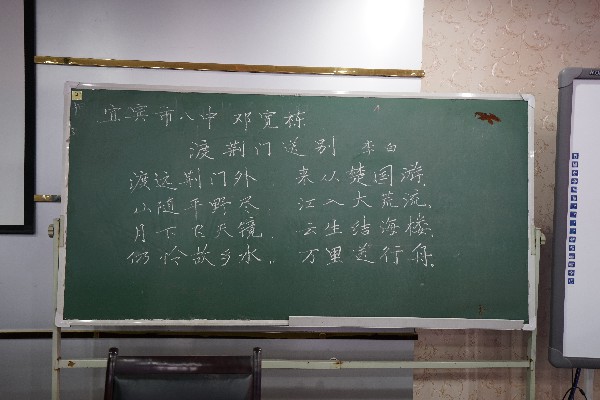 宜宾市八中 邓宽栋
渡荆门送别 李白
渡远荆门外 来从楚国游.
山随平野尽 江入大荒流.
月下飞天镜. 云生结海楼.
仍怜故乡水. 万里送行舟.